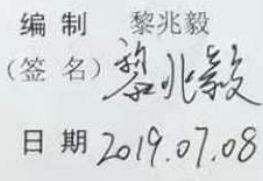 编制 黎兆毅
（签名）黎兆毅
日期 2019.07.08